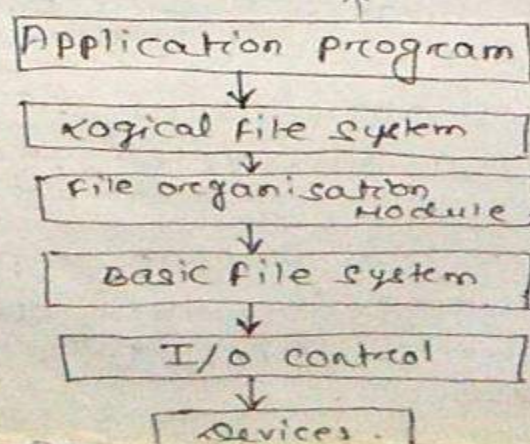 Application program
Logical file system
file organisation
Module
Basic file system
I/O control
Devices.